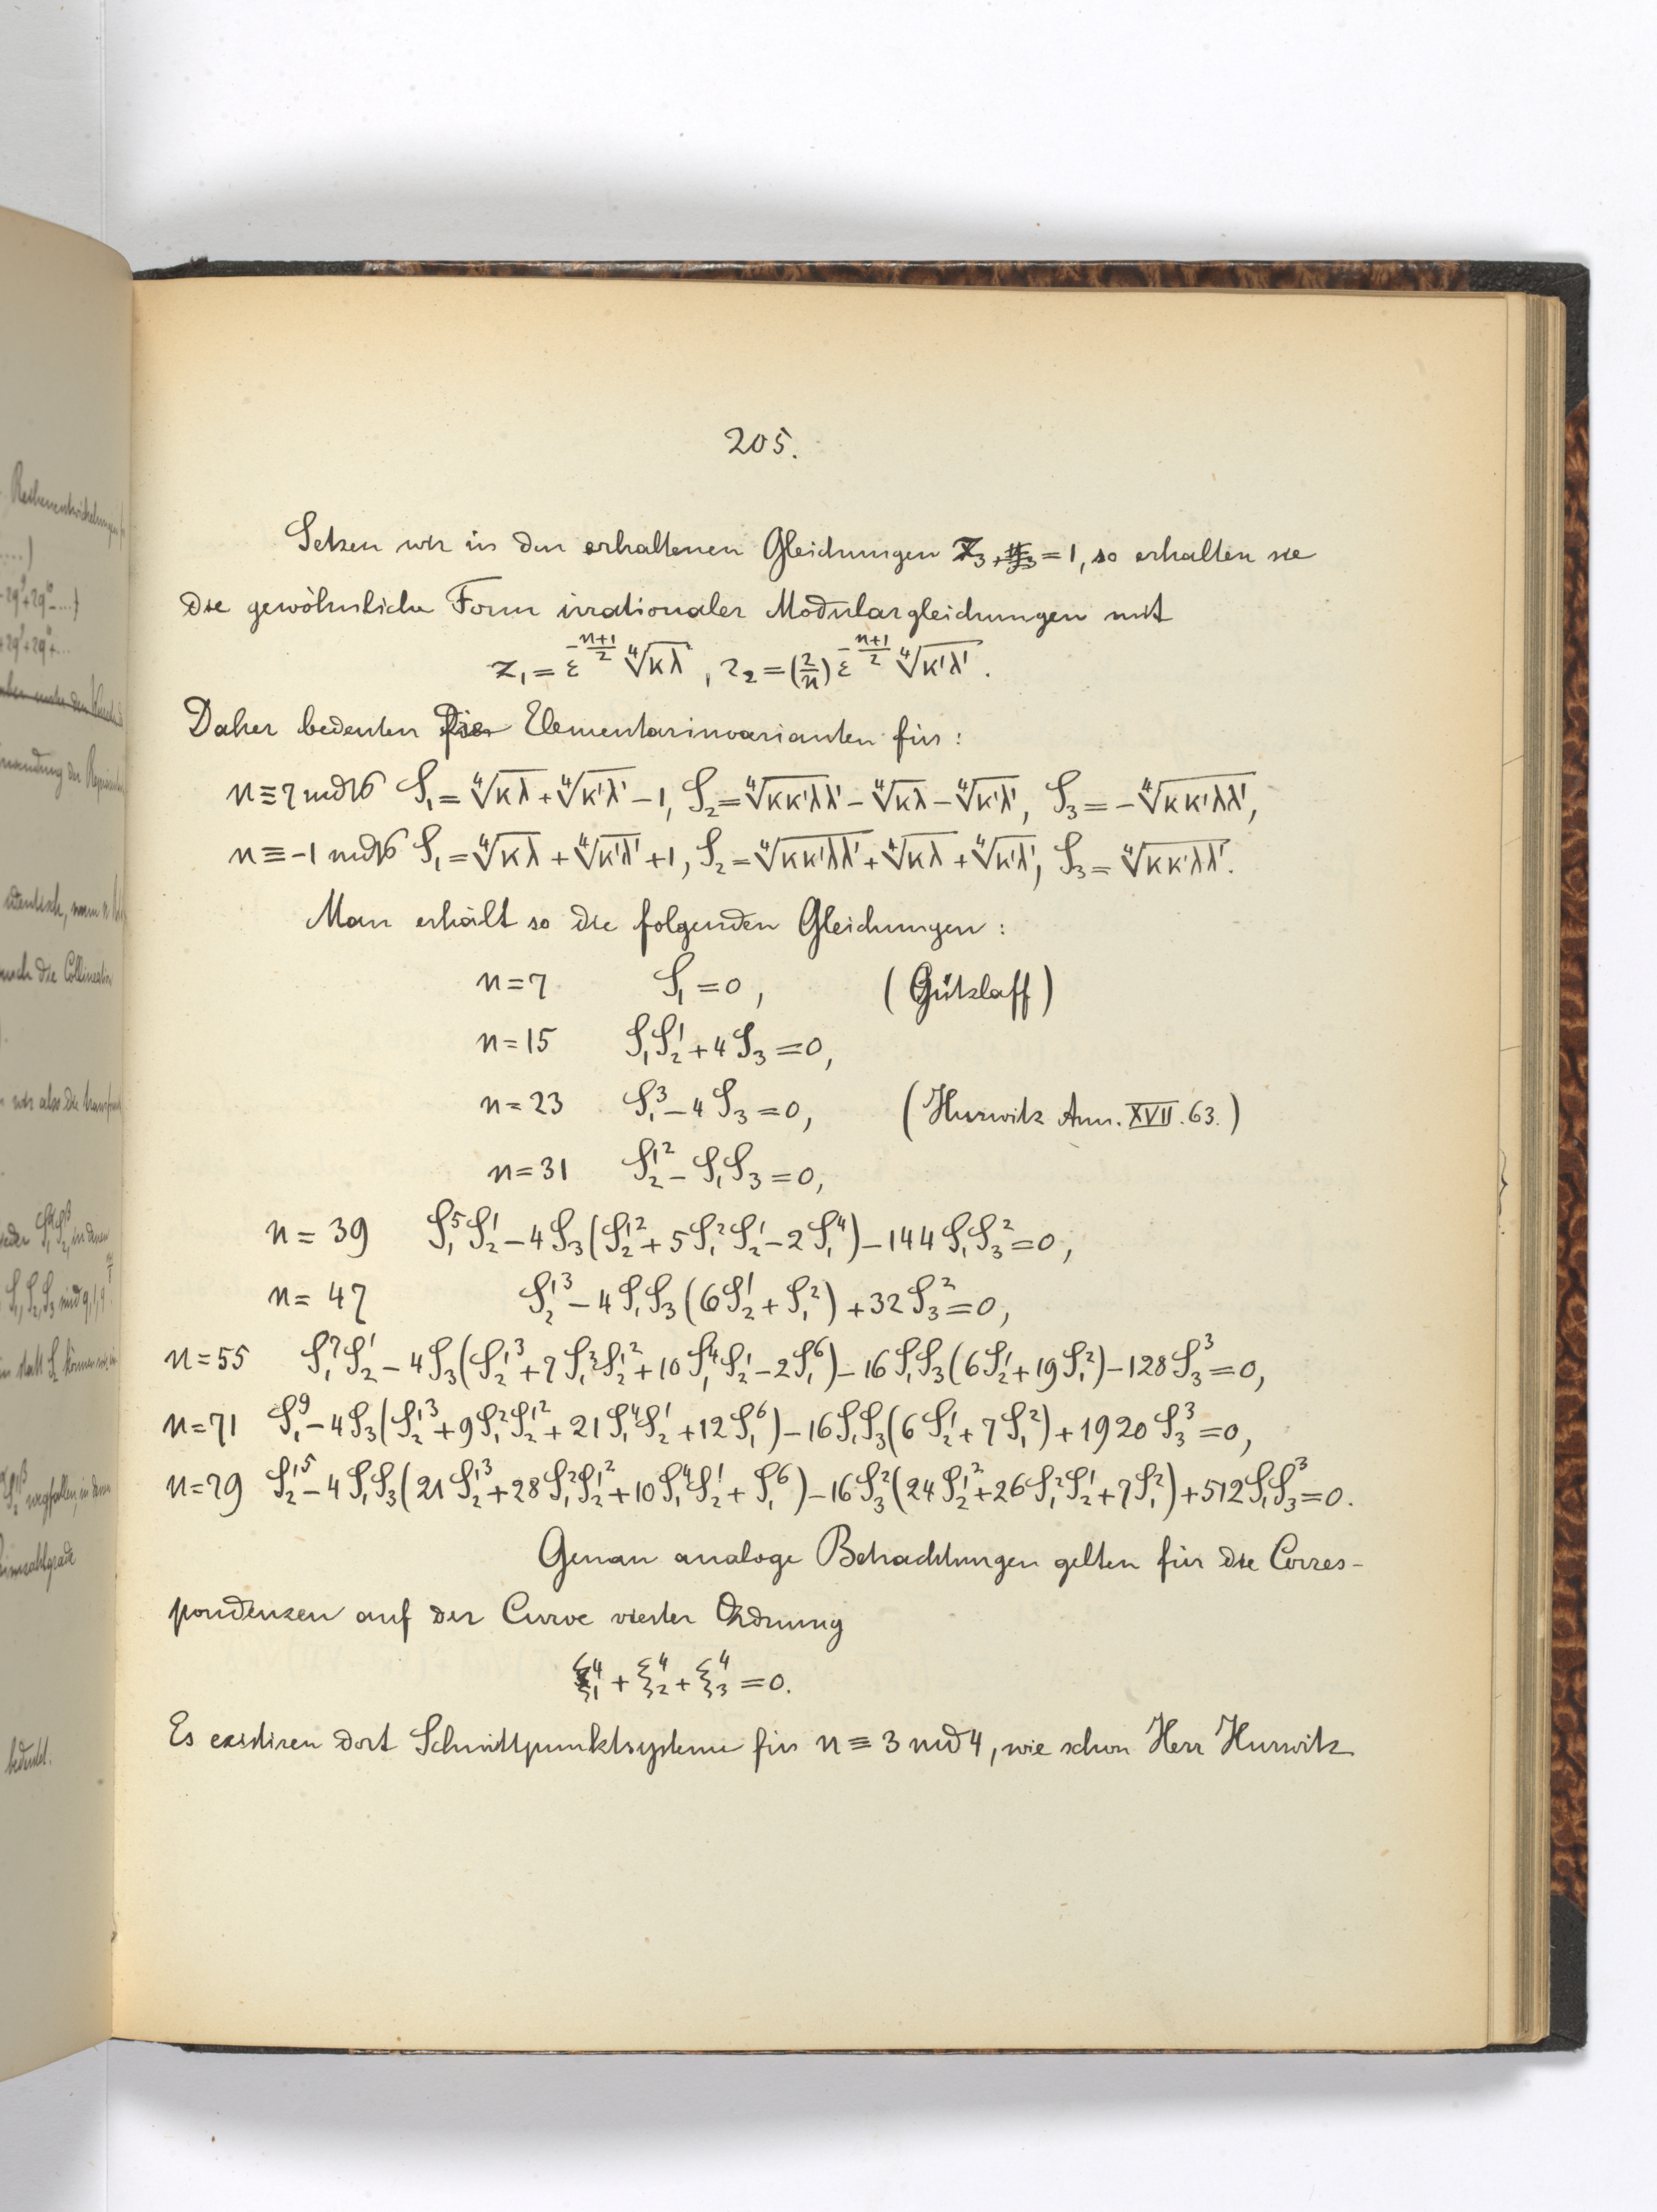 205.
Setzen wir in den erhaltenen Gleichungen z₃ = 1, so erhalten sie
die gewöhnliche Form irrationaler Modulargleichungen mit
z₁ = ε^(-(n+1)/2) ∜(κλ), z₂ = (2/n) ε^(-(n+1)/2) ∜(κ'λ').
Daher bedeuten die Elementarinvarianten für:
n ≡ 7 mod 16 S₁ = ∜(κλ) + ∜(κ'λ') − 1, S₂ = ∜(κκ'λλ') − ∜(κλ) − ∜(κ'λ'), S₃ = −∜(κκ'λλ'),
n ≡ −1 mod 16 S₁ = ∜(κλ) + ∜(κ'λ') + 1, S₂ = ∜(κκ'λλ') + ∜(κλ) + ∜(κ'λ'), S₃ = ∜(κκ'λλ').
Man erhält so die folgenden Gleichungen:
n = 7 S₁ = 0, (Gützlaff)
n = 15 S₁S₂' + 4S₃ = 0,
n = 23 S₁³ − 4S₃ = 0, (Hurwitz Ann. XVII. 63.)
n = 31 S₂'² − S₁S₃ = 0,
n = 39 S₁⁵S₂' − 4S₃(S₂'² + 5S₁²S₂' − 2S₁⁴) − 144S₁S₃² = 0,
n = 47 S₂'³ − 4S₁S₃(6S₂' + S₁²) + 32S₃² = 0,
n = 55 S₁⁷S₂' − 4S₃(S₂'³ + 7S₁²S₂'² + 10S₁⁴S₂' − 2S₁⁶) − 16S₁S₃(6S₂' + 19S₁²) − 128S₃³ = 0,
n = 71 S₁⁹ − 4S₃(S₂'³ + 9S₁²S₂'² + 21S₁⁴S₂' + 12S₁⁶) − 16S₁S₃(6S₂' + 7S₁²) + 1920S₃³ = 0,
n = 79 S₂'⁵ − 4S₁S₃(21S₂'³ + 28S₁²S₂'² + 10S₁⁴S₂' + S₁⁶) − 16S₃²(24S₂'² + 26S₁²S₂' + 7S₁²) + 512S₁S₃³ = 0.
Genau analoge Betrachtungen gelten für die Corres-
pondenzen auf der Curve vierter Ordnung
ξ₁⁴ + ξ₂⁴ + ξ₃⁴ = 0.
Es existiren dort Schnittpunktsysteme für n ≡ 3 mod 4, wie schon Herr Hurwitz